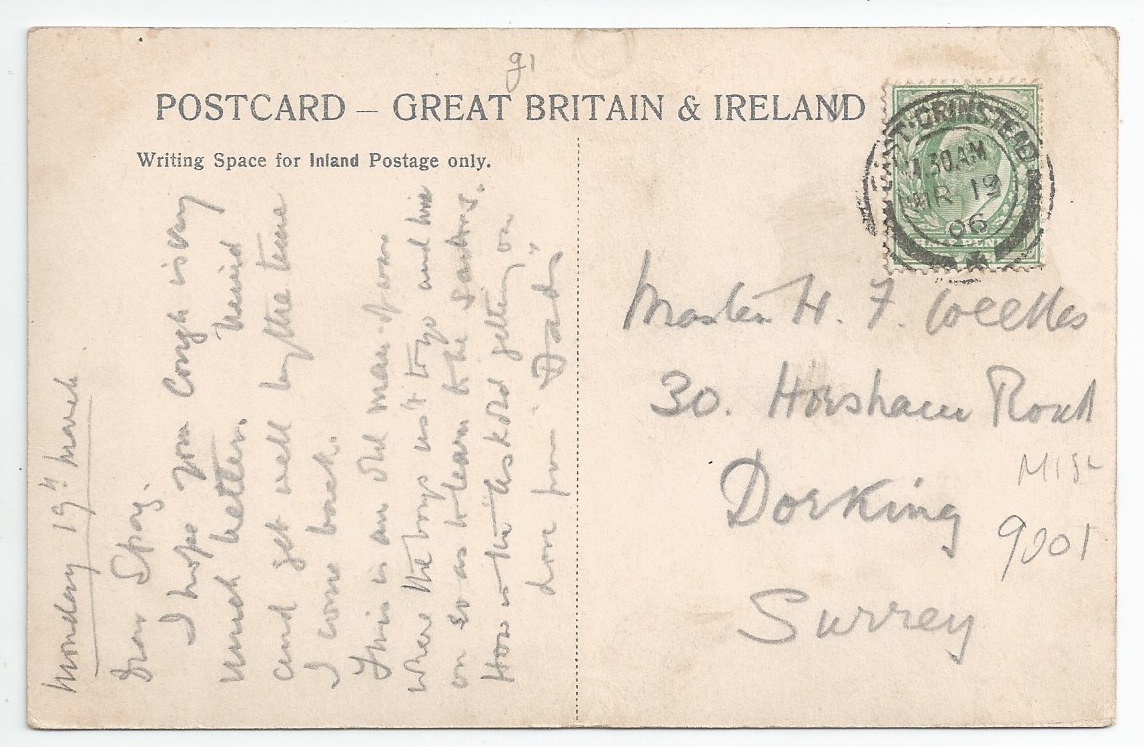 91
POSTCARD – GREAT BRITAIN & IRELAND
Writing Space for Inland Postage only.
EAST GRINSTEAD
11.30AM
MR 19
06
Monday 19th March
Dear
I hope your Cough is very
much better.
and get well by the time
I come back.
This is an old man-of-war
where the boys us't to go and live
on so as to learn to be sailors.
How is the getting on
love from Dad
Master H. F.
30. Horsham Road
Dorking
Surrey
9001